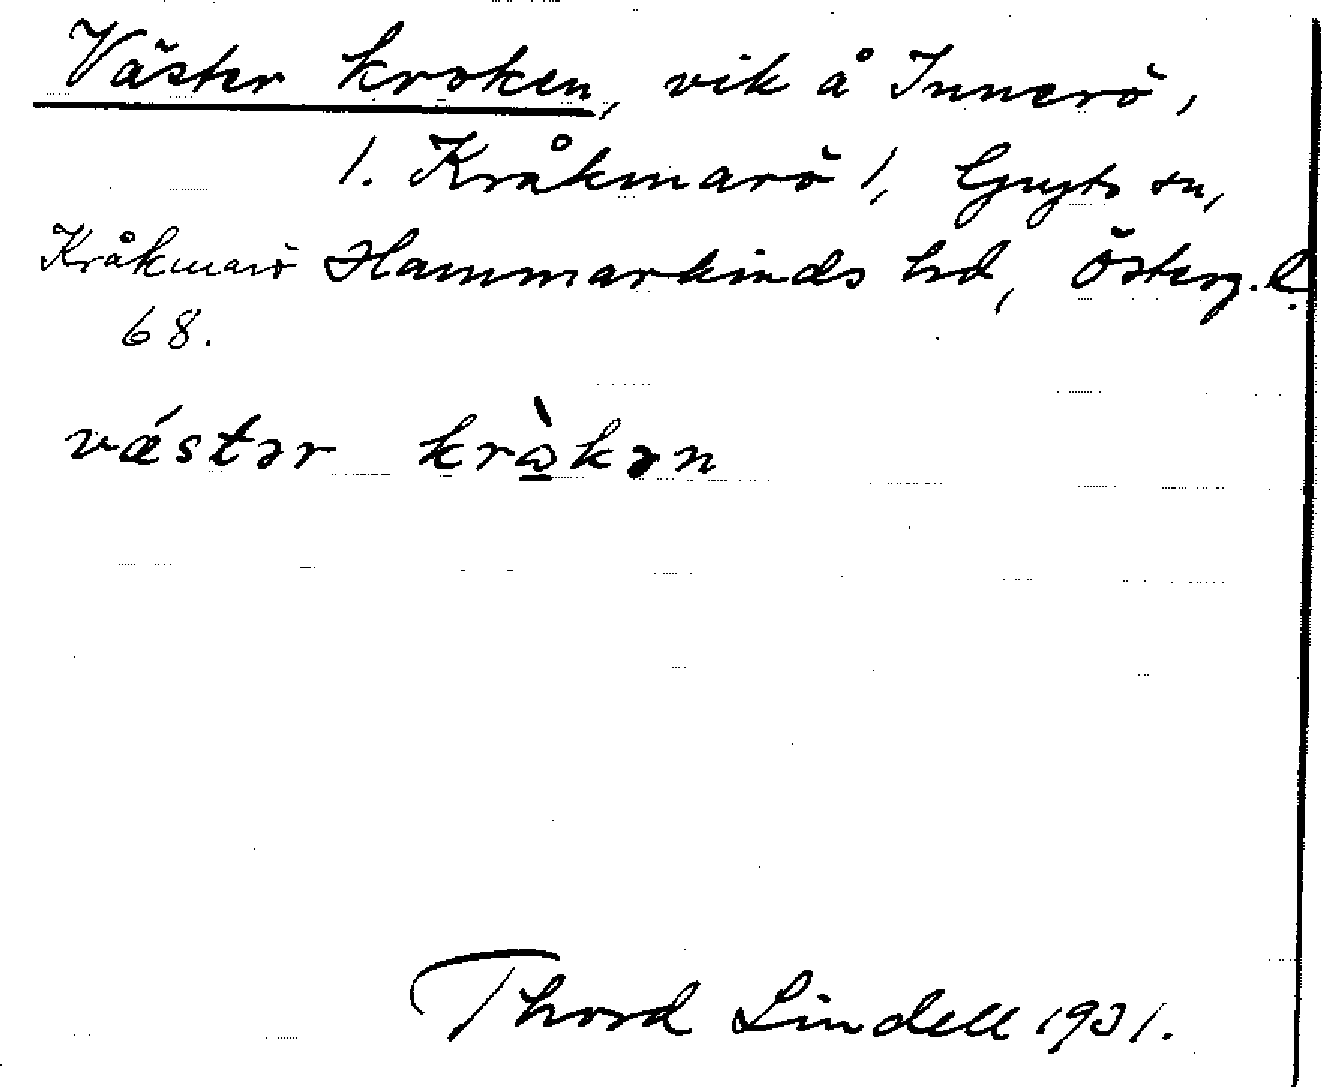 Väster kroken, vik å Innerö,
1. Kråkmarö 1, Gryts sn,
Kråkmarö Hammarkinds hd, Österg. l.
68.
vástər krὼkən
Thord Lindell 1931.